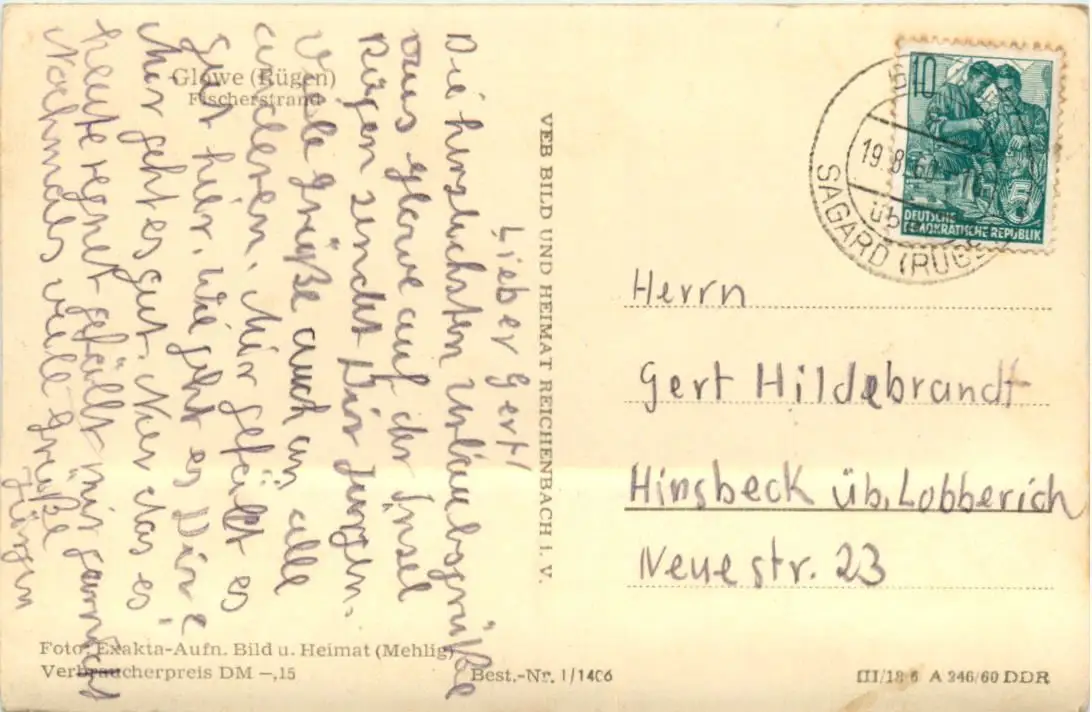 Glowe (Rügen)
Fischerstrand
Lieber Gert!
Die herzlichsten Urlaubsgrüße
aus Glowe auf der Insel
Rügen sendet Dir Jürgen.
Viele Grüße auch an alle
anderen. Mir gefällt es
gut hier. Wie geht es Dir?
Mir geht es gut. Nur das es
heute regnet gefällt mir garnicht
Nochmals viele Grüße
Jürgen
VEB BILD UND HEIMAT REICHENBACH I. V.
10
5
DEUTSCHE
DEMOKRATISCHE REPUBLIK
19.8.60
üb
SAGARD (RÜGEN)
Herrn
Gert Hildebrandt
Hinsbeck üb. Lobberich
Neuestr. 23
Foto: Exakta-Aufn. Bild u. Heimat (Mehlig)
Verbraucherpreis DM –,15
Best.-Nr. 1/1406
III/18-6 A 346/60 DDR